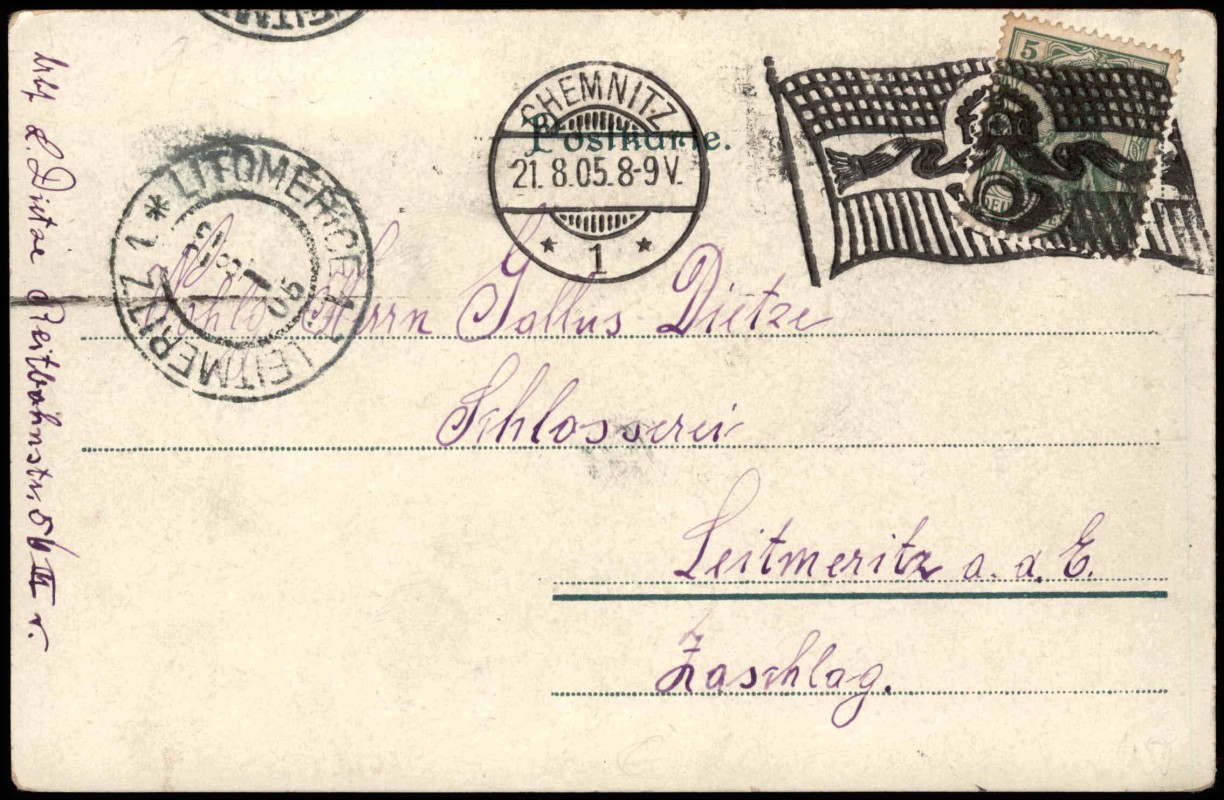 LEITM
CHEMNITZ
21.8.05.8-9V.
* 1 *
Postkarte.
5
* LITOMĚŘICE 1
LEITMERITZ 1
05
Wohlg. Herrn Gallus Dietze
Schlosserei
Leitmeritz a. d. E.
Zaschlag.
Dietze Reitbahnstr. 56 III r.